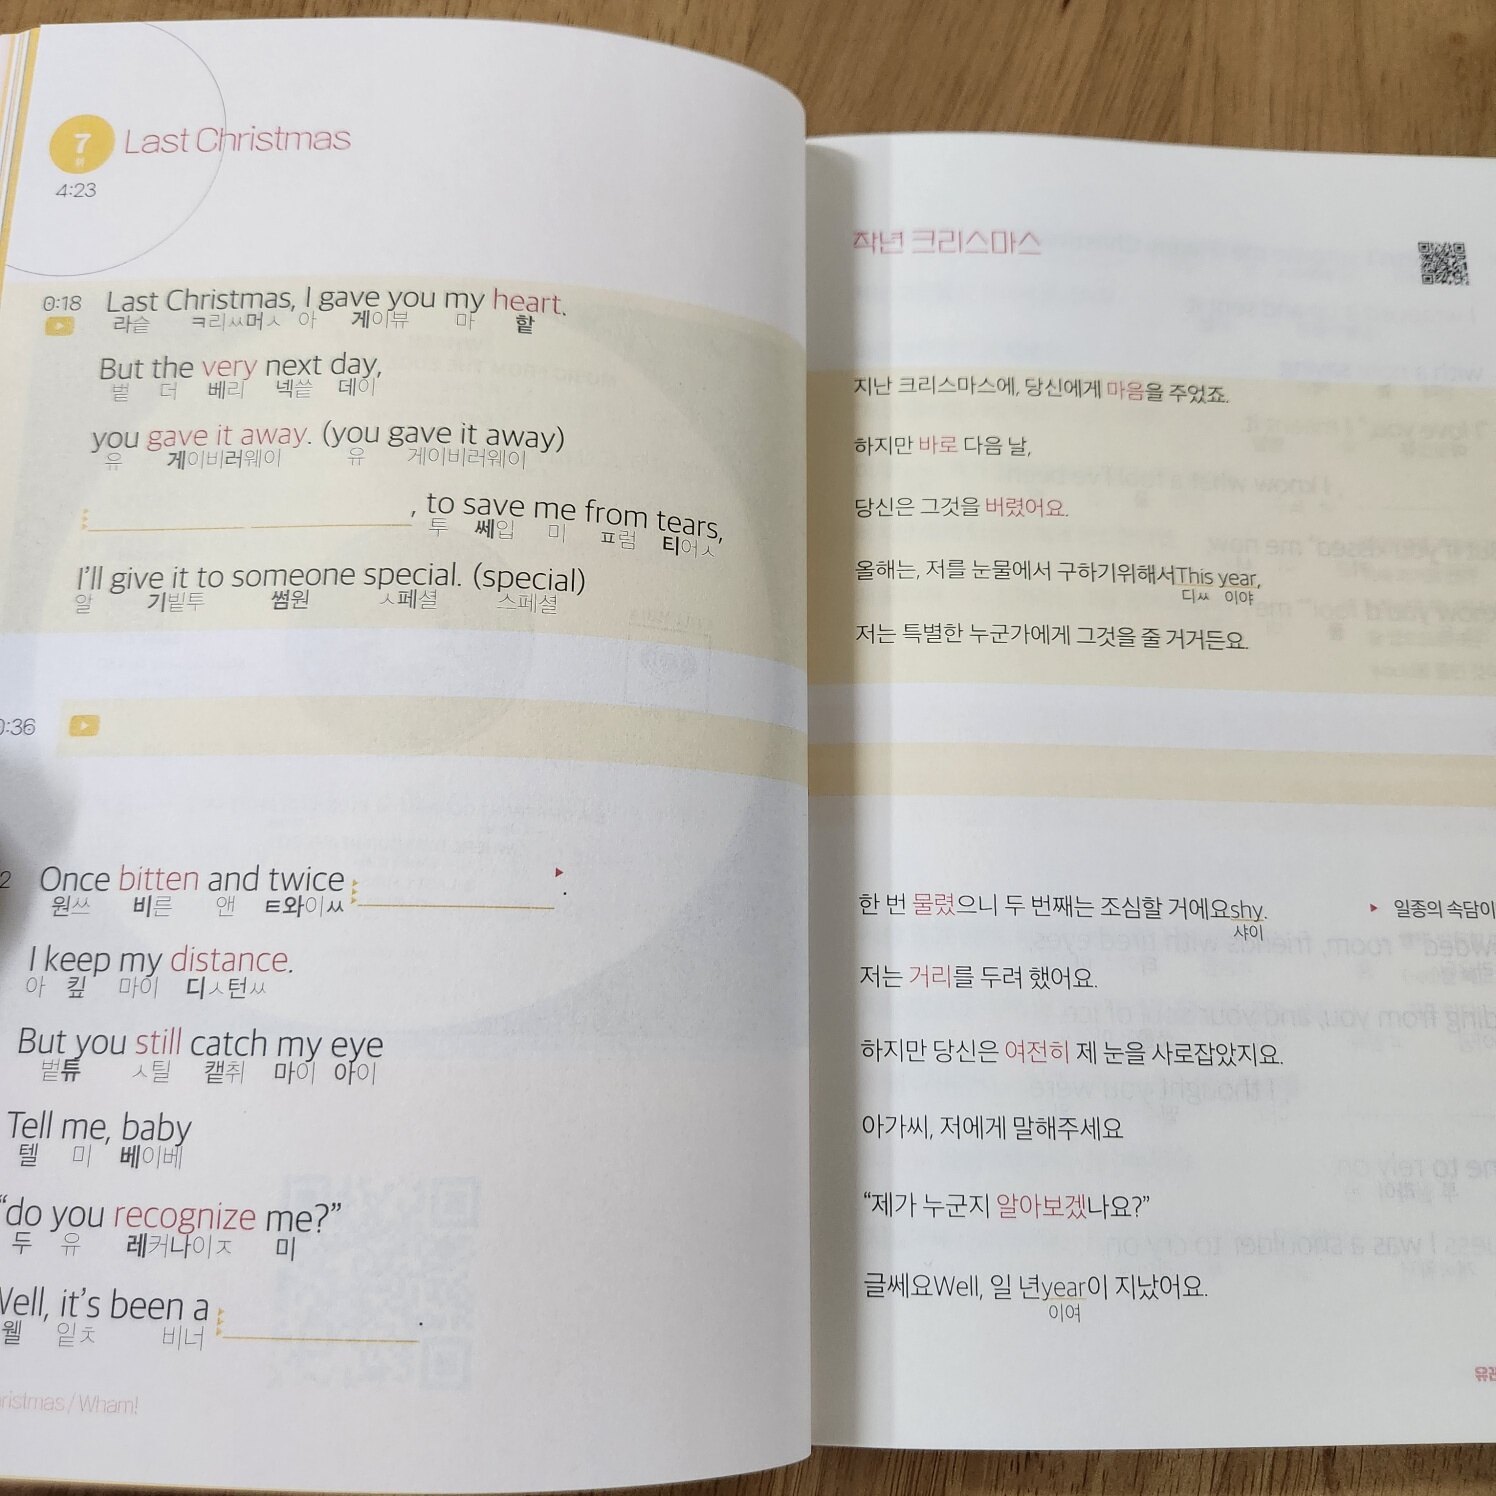 7
위
Last Christmas
4:23
0:18 Last Christmas, I gave you my heart.
라슽 ㅋ리ㅆ머ㅅ 아 게이뷰 마 할
But the very next day,
벝 더 베리 넥쓷 데이
you gave it away. (you gave it away)
유 게이비러웨이 유 게이비러웨이
, to save me from tears,
투 쎄입 미 ㅍ럼 티어ㅅ
I'll give it to someone special. (special)
알 기빝투 썸원 ㅅ페셜 스페셜
0:36
Once bitten and twice .
원쓰 비른 앤 ㅌ와이ㅆ
I keep my distance.
아 킾 마이 디ㅅ턴ㅆ
But you still catch my eye
벝튜 ㅅ틸 캩취 마이 아이
Tell me, baby
텔 미 베이베
“do you recognize me?”
두 유 레커나이ㅈ 미
Well, it's been a .
웰 잍ㅊ 비너
ristmas / Wham!
작년 크리스마스
지난 크리스마스에, 당신에게 마음을 주었죠.
하지만 바로 다음 날,
당신은 그것을 버렸어요.
올해는, 저를 눈물에서 구하기위해서This year,
디ㅆ 이야
저는 특별한 누군가에게 그것을 줄 거거든요.
한 번 물렸으니 두 번째는 조심할 거에요shy. 일종의 속담이
샤이
저는 거리를 두려 했어요.
하지만 당신은 여전히 제 눈을 사로잡았지요.
아가씨, 저에게 말해주세요
“제가 누군지 알아보겠나요?”
글쎄요Well, 일 년year이 지났어요.
이여